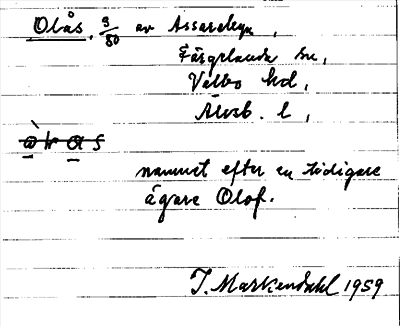 Olås, 9/80 av Assarebyn,
Färgelanda sn,
Valbo hd,
Älvsb. l,
namnet efter en tidigare
ägare Olof.
J. Markendahl 1959